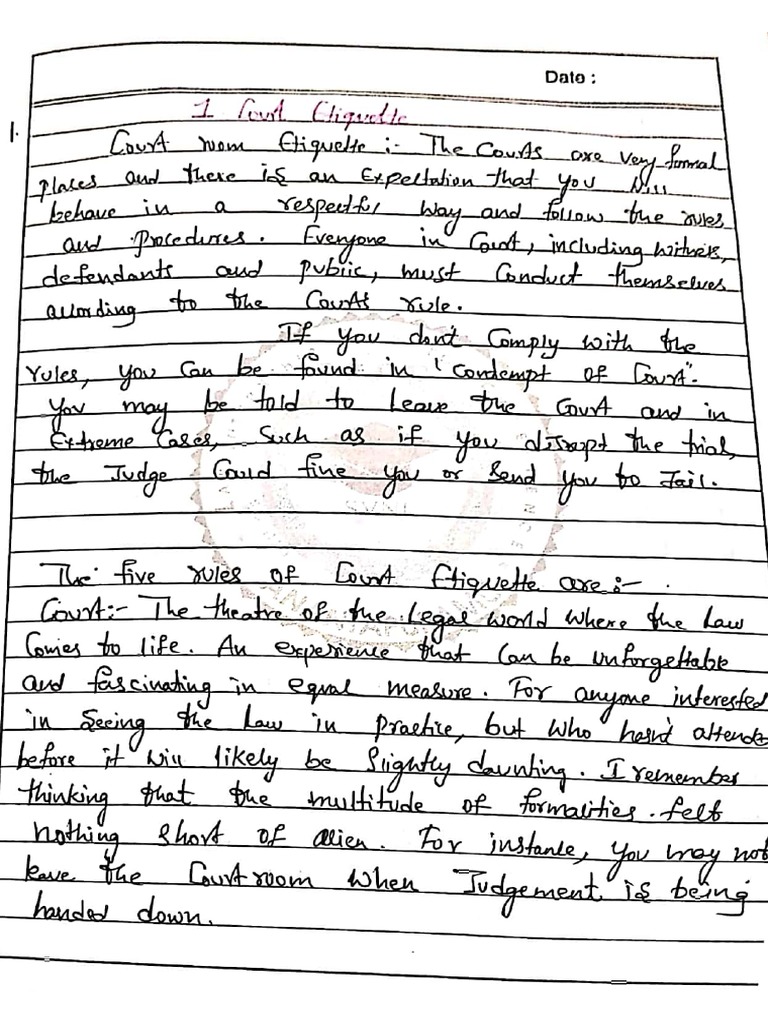 Date :
1 Court Etiquette
1.
Court room Etiquette :- The Courts are very formal
places and there is an Expectation that you will
behave in a respectful way and follow the rules
and procedures. Everyone in Court, including witness,
defendants and public, must Conduct themselves
according to the Courts rule.
If you don't Comply with the
rules, you Can be found in "Contempt of Court".
You may be told to Leave the Court and in
Extreme Cases, Such as if you disrupt the trial,
the Judge Could fine you or Send you to Jail.
The five rules of Court Etiquette are :-
Court :- The theatre of the Legal world where the Law
Comes to life. An experience that Can be unforgettable
and fascinating in equal measure. For anyone interested
in Seeing the Law in practice, but Who hasn't attende
before it will likely be Slightly daunting. I remember
thinking that the multitude of formalities felt
nothing Short of alien. For instance, you may not
leave the Court room when Judgement is being
handed down.